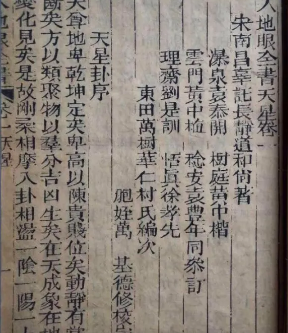 人地眼全書天星卷一
宋南昌辜託長靜道和尚著
瀑泉袁泰開 樹庭黃中楷
雲門黃中檢 檢安袁豊年同叅訂
理齋劉是訓 恬眞徐孝先
東田萬樹華仁村氏編次
胞姪萬 基德修校
天星卦序
天尊地卑乾坤定矣卑高以陳貴賤位矣動靜有常
斷矣方以類聚物以羣分吉凶生矣在天成象在地
變化見矣是故剛柔相摩八卦相盪一陰一陽
卷一天星